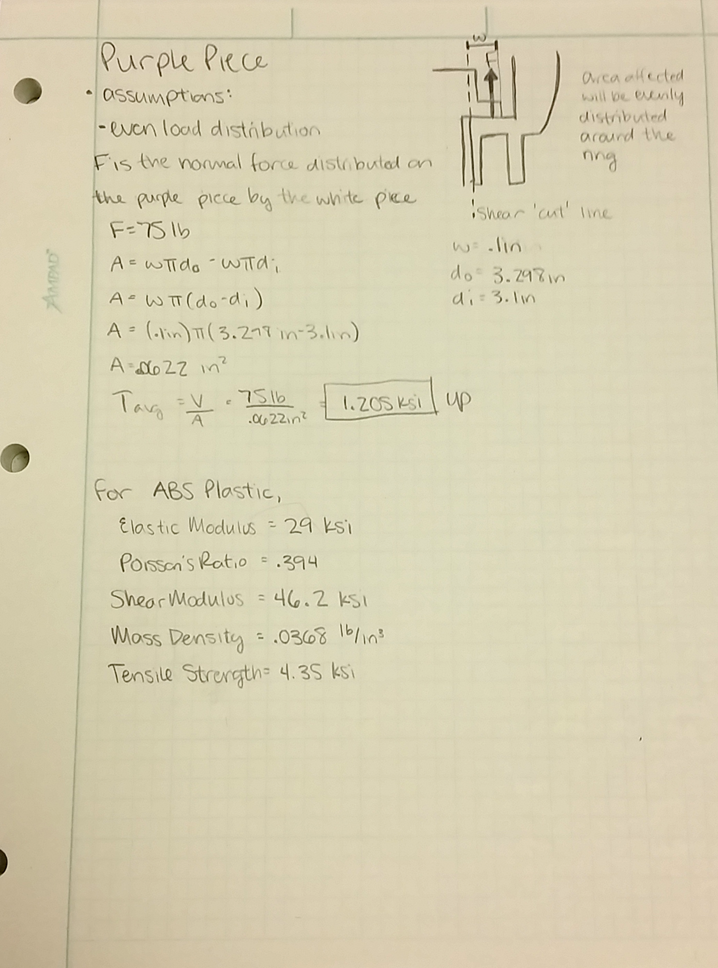 Purple Piece
• assumptions:
- even load distribution
F is the normal force distributed on
the purple piece by the white piece
F = 75 lb
A = wπdo - wπdi
A = wπ(do-di)
A = (.1in)π(3.298 in-3.1in)
A = .0622 in²
Tavg = V/A = 75 lb/.0622in² = 1.205 ksi up
w
area affected
will be evenly
distributed
around the
ring
shear 'cut' line
w = .1in
do = 3.298in
di = 3.1in
AMPAD
for ABS Plastic,
Elastic Modulus = 29 ksi
Poisson's Ratio = .394
Shear Modulus = 46.2 ksi
Mass Density = .0368 lb/in³
Tensile Strength = 4.35 ksi